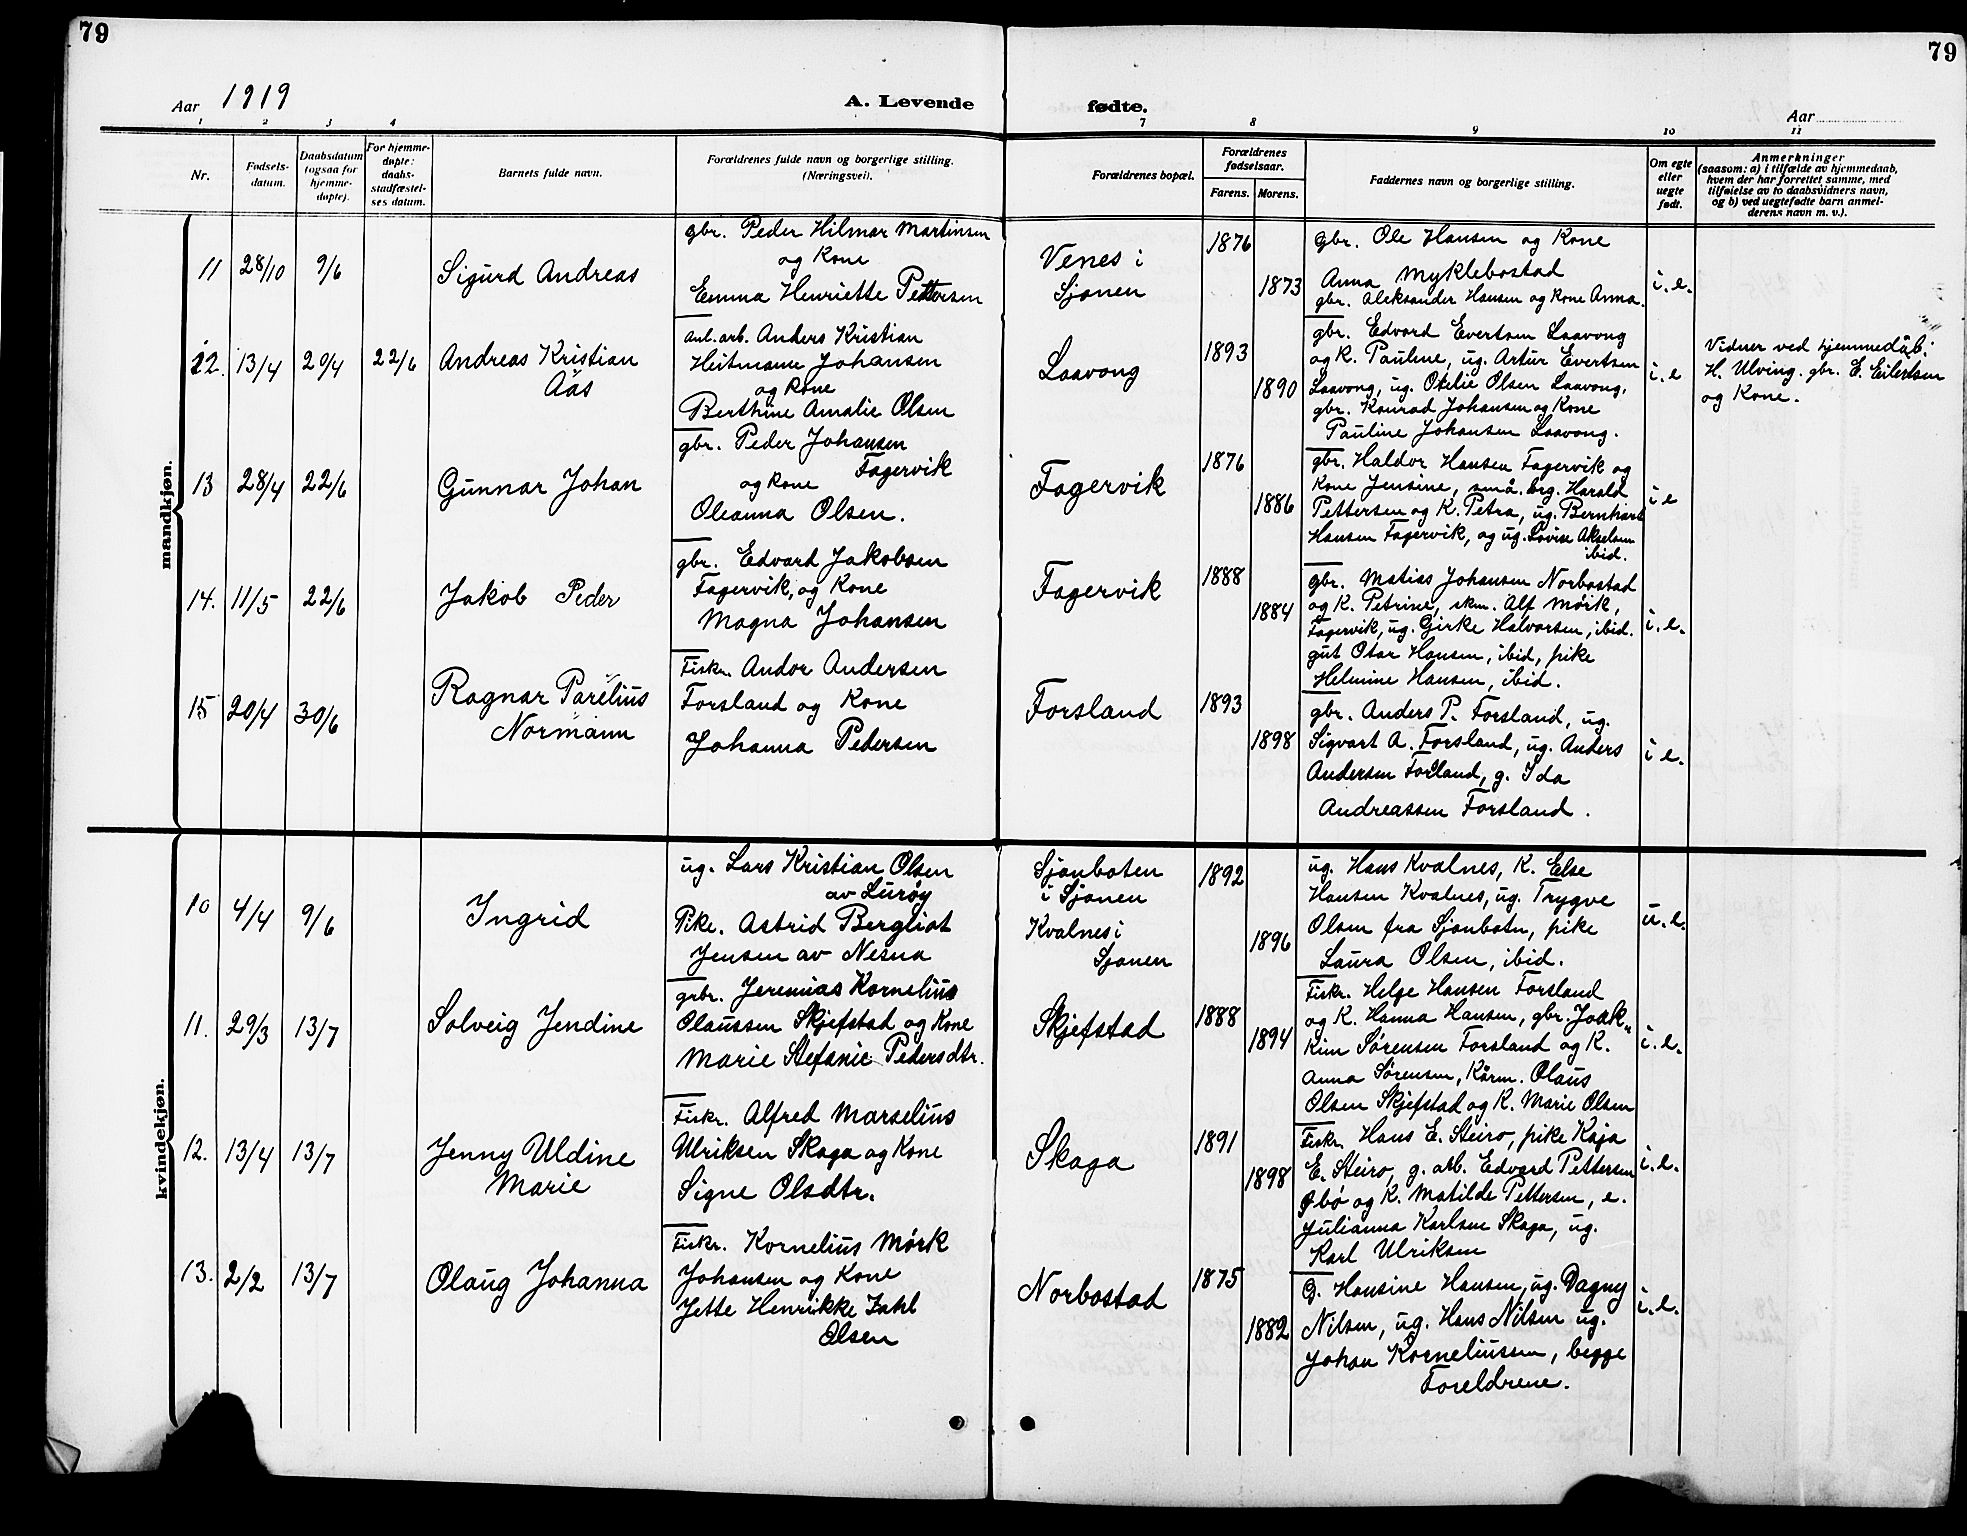 79
79
Aar 1919
A. Levende fødte.
Aar
1 2 3 4 7 8 9 10 11
Nr.
Fødselsdatum.
Daabsdatum (ogsaa for hjemmedøpte).
For hjemmedøpte: daabsstadfæstelses datum.
Barnets fulde navn.
Forældrenes fulde navn og borgerlige stilling. (Næringsvei).
Forældrenes bopæl.
Forældrenes fødselsaar.
Farens. Morens.
Faddernes navn og borgerlige stilling.
Om egte eller uegte født.
Anmerkninger
(saasom: a) i tilfælde av hjemmedaab,
hvem der har forrettet samme, med
tilføielse av to daabsvidners navn,
og b) ved uegtefødte barn anmel-
derens navn m. v.).
mandkjøn.
11 28/10 9/6
Sigurd Andreas
gbr. Peder Hilmar Martinsen
og Kone
Emma Henriette Pettersen
Venes i
Sjonen
1876
1873
gbr. Ole Hansen og Kone
Anna Myklebostad
gbr. Aleksander Hansen og Kone Anna.
i. e.
12. 13/4 20/4 22/6
Andreas Kristian
Aas
anl. arb. Anders Kristian
Heitmann Johansen
og Kone
Berthine Amalie Olsen
Laavong
1893
1890
gbr. Edvard Evertsen Laavong
og K. Pauline, ug. Artur Evertsen
Laavong, ug. Otelie Olsen Laavong,
gbr. Konrad Johansen og Kone
Pauline Johansen Laavong.
i. e
Vidner ved hjemmedåb:
H. Ulving. gbr. E. Eilertsen
og Kone.
13 28/4 22/6
Gunnar Johan
gbr. Peder Johansen
Fagervik
og Kone
Oleanna Olsen.
Fagervik
1876
1886
gbr. Haldor Hansen Fagervik og
Kone Jensine, små. brg. Harald
Pettersen og K. Petra, ug. Bernhart
Hansen Fagervik, og ug. Lovise Akselsen
ibid.
i e
14. 11/5 22/6
Jakob Peder
gbr. Edvard Jakobsen
Fagervik, og Kone
Magna Johansen
Fagervik
1888
1884
gbr. Matias Johansen Norbostad
og K. Petrine, skm. Alf Mörk,
Fagervik, ug. Girke Halvorsen, ibid.
gut Otar Hansen, ibid, pike
Helmine Hansen, ibid.
i. e.
15 20/4 30/6
Ragnar Parelius
Normann
Fiskr. Andor Andersen
Forsland og Kone
Johanna Pedersen
Forsland
1893
1898
gbr. Anders P. Forsland, ug.
Sigvart A. Forsland, ug. Anders
Andersen Forsland, g. Ida
Andreassen Forsland.
i e.
kvindekjøn.
10 4/4 9/6
Ingrid
ug. Lars Kristian Olsen
av Lurøy
Pike. Astrid Bergliot
Jensen av Nesna
Sjonboten
i Sjonen
Kvalnes i
Sjonen
1892
1896
ug. Hans Kvalnes, K. Else
Hansen Kvalnes, ug. Trygve
Olsen fra Sjonbotn, pike
Laura Olsen, ibid.
u. e.
11. 29/3 13/7
Solveig Jendine
gbr. Jeremias Kornelius
Olaussen Skjefstad og Kone
Marie Stefanie Pedersdtr.
Skjefstad
1888
1894
Fiskr. Helge Hansen Forsland
og K. Hanna Hansen, gbr. Joak„
kim Sørensen Forsland og K.
Anna Sørensen, Kårm. Olaus
Olsen Skjefstad og K. Marie Olsen
i. e.
12. 13/4 13/7
Jenny Uldine
Marie
Fiskr. Alfred Marselius
Ulriksen Skaga og Kone
Signe Olsdtr.
Skaga
1891
1898
Fiskr. Hans E. Steiro, pike Kaja
E. Steiro, g. arb. Edvard Pettersen
Øbø og K. Matilde Pettersen, e.
Julianna Karlsen Skaga, ug.
Karl Ulriksen
i. e.
13. 2/2 13/7
Olaug Johanna
Fiskr. Kornelius Mörk
Johansen og Kone
Jette Henrikke Zahl
Olsen
Norbostad
1875
1882
G. Hansine Hansen, ug. Dagny
Nilsen, ug. Hans Nilsen ug.
Johan Korneliussen, begge
Foreldrene.
i. e.